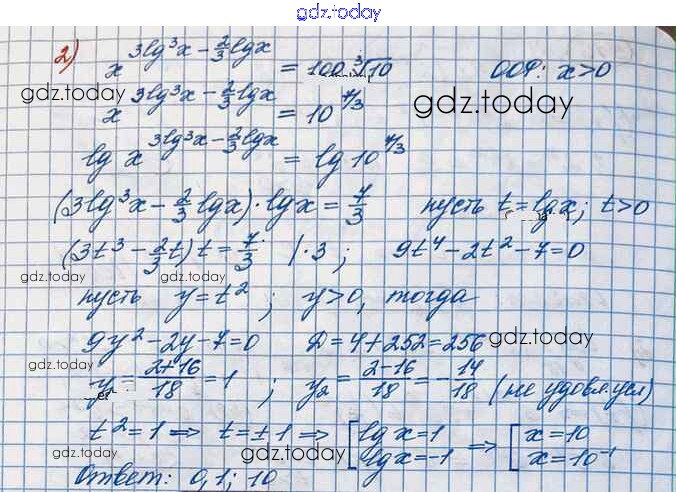 gdz.today
2) x^(3lg³x − 2/3 lgx) = 100·∛10   ООФ: x>0
gdz.today
x^(3lg³x − 2/3 lgx) = 10^(7/3)
gdz.today
lg x^(3lg³x − 2/3 lgx) = lg 10^(7/3)
(3lg³x − 2/3 lgx)·lgx = 7/3   пусть t = lgx; t>0
gdz.today
(3t³ − 2/3 t) t = 7/3 | ·3 ; 9t⁴ − 2t² − 7 = 0
gdz.today
пусть y = t² ; y>0, тогда
9y² − 2y − 7 = 0   D = 4 + 252 = 256
gdz.today
y₁ = (2+16)/18 = 1 ; y₂ = (2−16)/18 = −14/18 (не удовл. усл)
gdz.today
t² = 1 ⇒ t = ±1 ⇒ [lgx = 1 lgx = −1 ⇒ [x = 10 x = 10⁻¹
gdz.today
gdz.today
Ответ: 0,1; 10